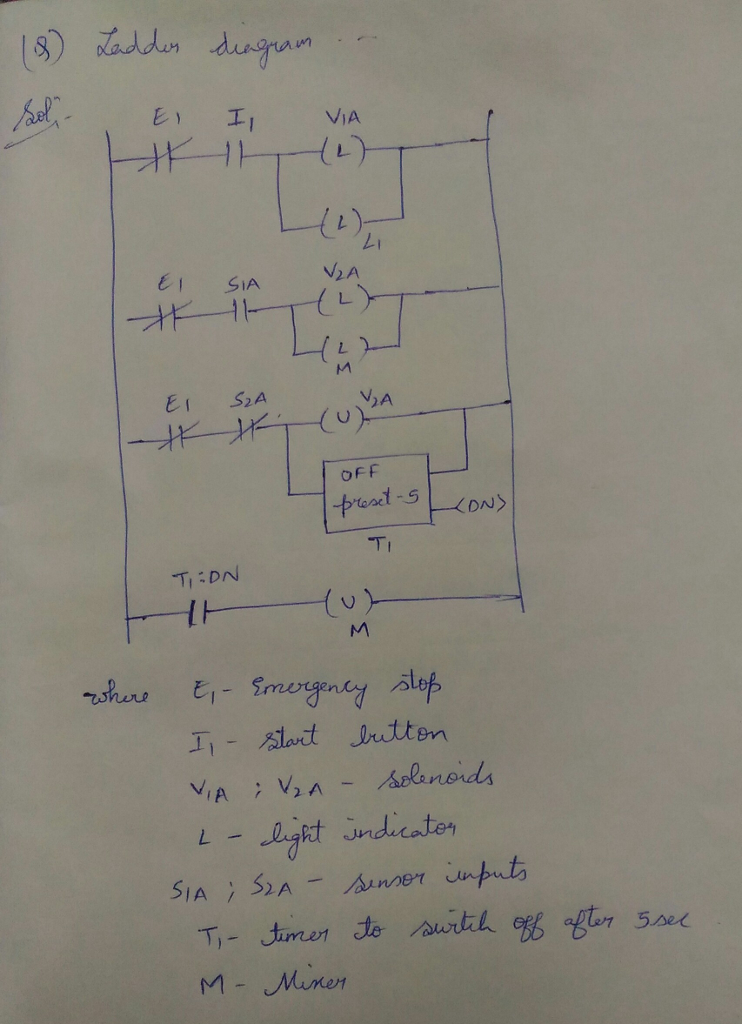 (Q) Ladder diagram ...
Sol:-
E1 I1 V1A
(L)
(L)
L1
E1 S1A V2A
(L)
(L)
M
E1 S2A V2A
(U)
OFF
preset-5 <DN>
T1
T1=DN
(U)
M
where E1 - Emergency stop
I1 - Start button
V1A ; V2A - Solenoids
L - light indicator
S1A ; S2A - sensor inputs
T1 - timer to switch off after 5 sec
M - Mixer